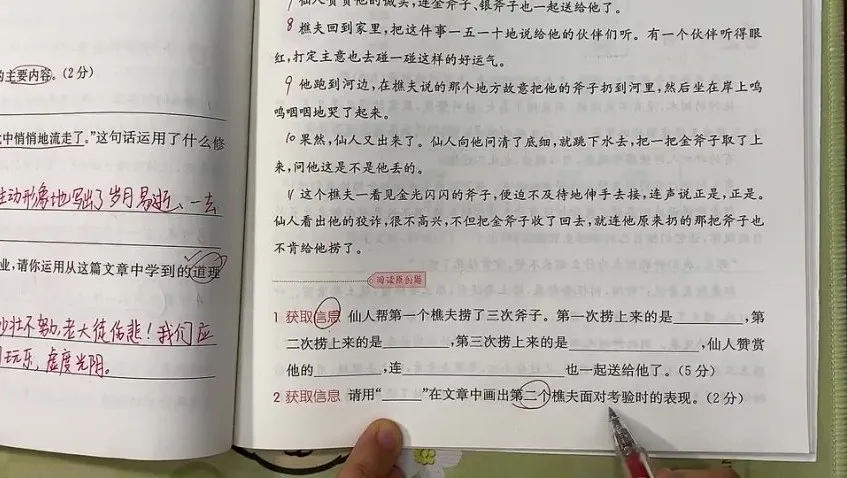 的主要内容。(2分)
中悄悄地流走了。”这句话运用了什么修
生动形象地写出了岁月易逝、一去
业,请你运用从这篇文章中学到的道理
少壮不努力,老大徒伤悲!我们应
玩乐,虚度光阴。
7人赞赏他的诚实,连金斧子、银斧子也一起送给他了。
8 樵夫回到家里,把这件事一五一十地说给他的伙伴们听。有一个伙伴听得眼
红,打定主意也去碰一碰这样的好运气。
9 他跑到河边,在樵夫说的那个地方故意把他的斧子扔到河里,然后坐在岸上呜
呜咽咽地哭了起来。
10 果然,仙人又出来了。仙人向他问清了底细,就跳下水去,把一把金斧子取了上
来,问他这是不是他丢的。
11 这个樵夫一看见金光闪闪的斧子,便迫不及待地伸手去接,连声说正是,正是。
仙人看出他的狡诈,很不高兴,不但把金斧子收了回去,就连他原来扔的那把斧子也
不肯给他捞了。
阅读原创题
1 获取信息 仙人帮第一个樵夫捞了三次斧子。第一次捞上来的是________,第
二次捞上来的是________,第三次捞上来的是________,仙人赞赏
他的________,连________也一起送给他了。(5分)
2 获取信息 请用“____”在文章中画出第二个樵夫面对考验时的表现。(2分)